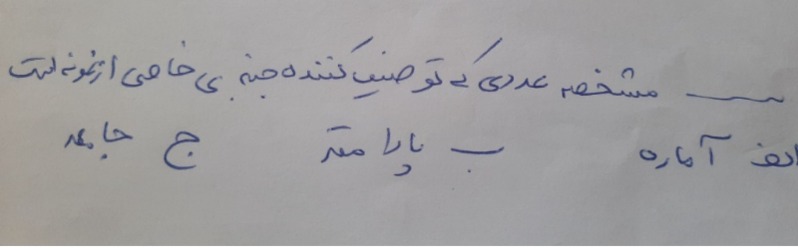 ــــــ مشخصه عددی که توصیف کننده جنبه ی خاصی از نمونه است
الف آماره ب پارامتر ج جامعه